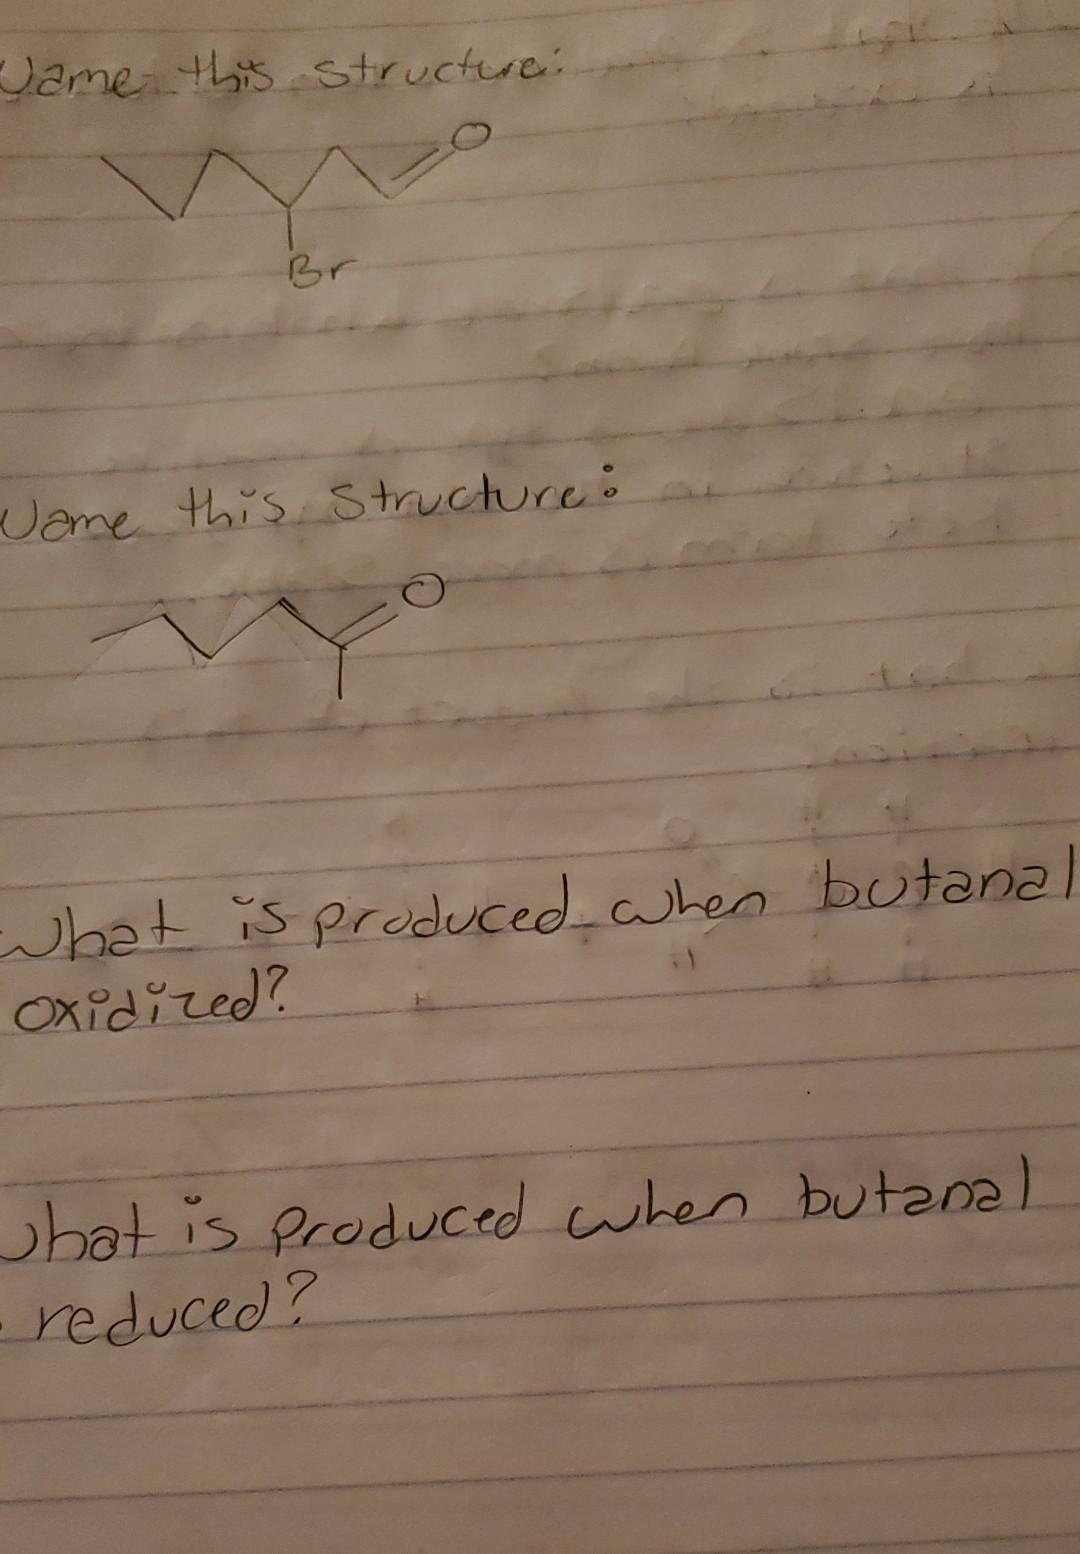 Name this structure:
O
Br
Name this Structure:
O
What is produced when butanal
oxidized?
What is produced when butanal
reduced?